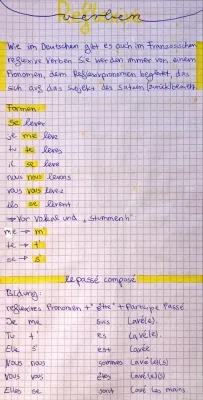 Reflexiv
verben
Wie im Deutschen gibt es auch im Französischen
reflexive Verben. Sie werden immer von einem
Pronomen, dem Reflexivpronomen begleitet, das
sich auf das Subjekt des Satzes (zurück)bezieht.
Formen:
se lever
je me lève
tu te lèves
il se lève
nous nous levons
vous vous levez
ils se lèvent
→ Vor Vokal und „stummen h"
me → m'
te → t'
se → s'
le passé composé
Bildung:
reflexives Pronomen + "être" + Participe Passé
Je me suis Lavé(e).
Tu t' es Lavé(e).
Elle s' est Lavée
Nous nous sommes Lavé(e)(s)
Vous vous êtes Lavé(e)(s)
Elles se sont Lavé les mains